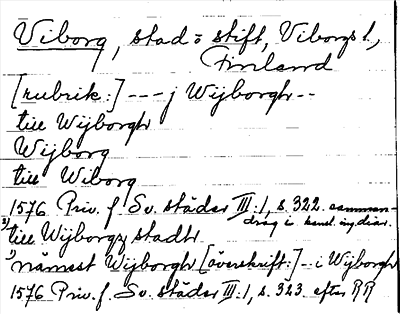 Viborg, stad o stift, Viborgs l.,
Finland
[rubrik:] --- j Wijborgh --
till Wijborgh
Wijborg
till Wiborg
1576 Priv. f. Sv. städer III:1, s. 322. samman-
drag i kansl. ing. diar.
2) till Wijborgz stadt
1) nämest Wijborgh [överskrift:] -- i Wijborgh
1576 Priv. f. Sv. städer III:1, s. 323 efter RR